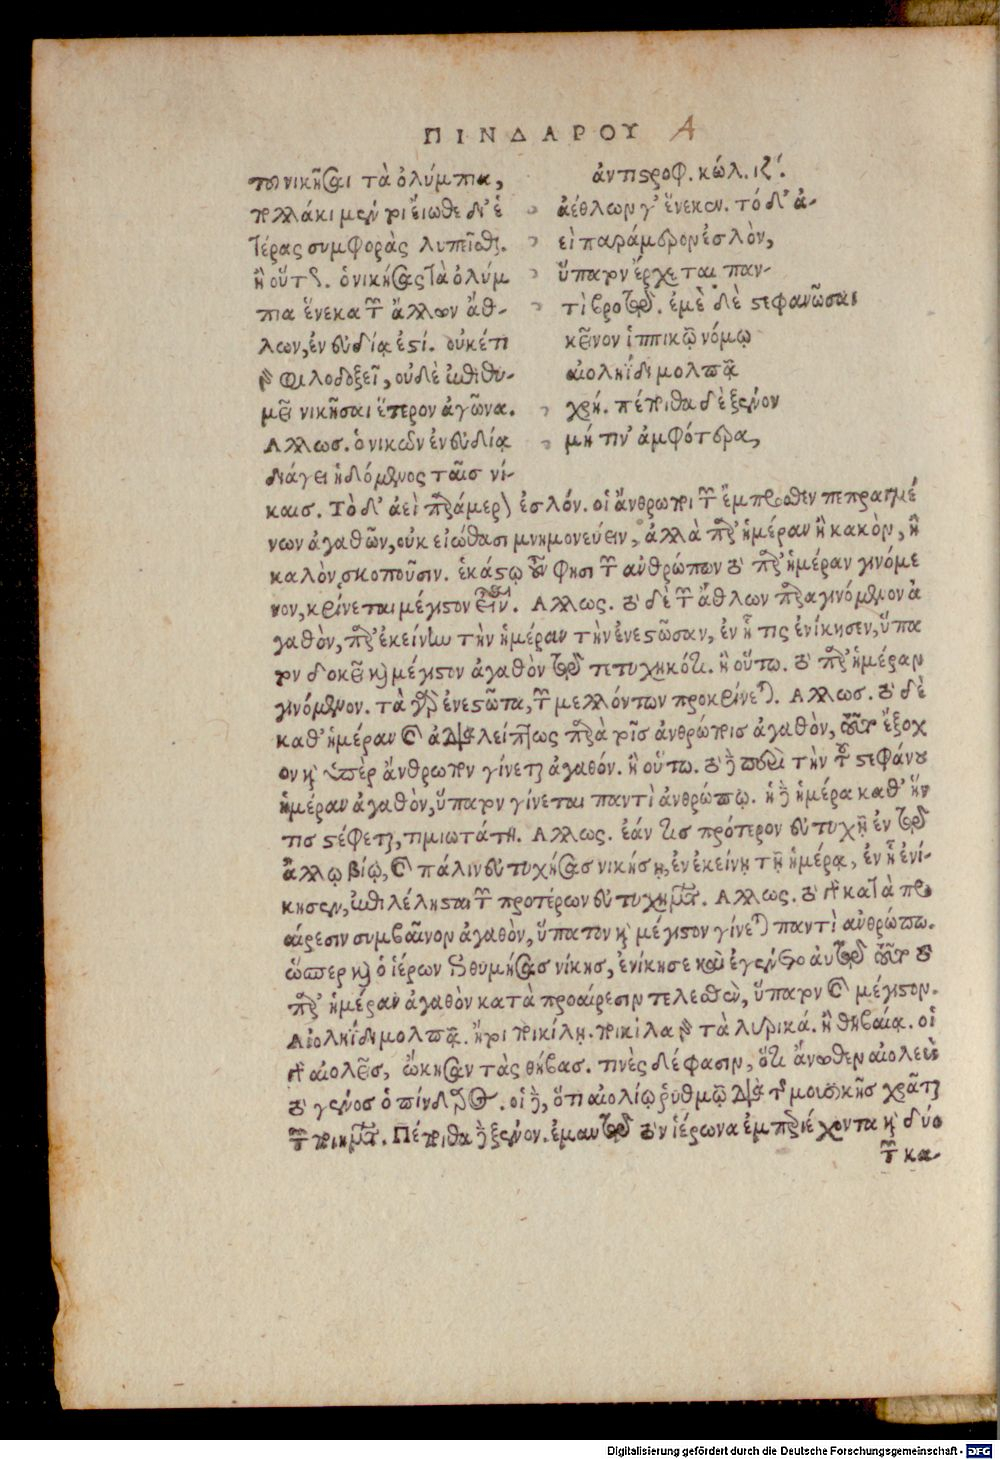 ΠΙΝΔΑΡΟΥ A
νικῆσαι τὰ ὀλύμπια,
πολλάκι μέν τοι εἴωθε δι' ἑ
τέρας συμφορὰς λυπεῖσθαι.
ἢ οὕτως. ὁ νικήσας τὰ ὀλύμ
πια ἕνεκα τῶν ἄλλων ἄθ-
λων, ἐν εὐδίᾳ ἐστί. οὐκέτι
γὰρ φιλοδοξεῖ, οὐδὲ ἐπιθυ-
μεῖ νικῆσαι ἕτερον ἀγῶνα.
Αλλως. ὁ νικῶν ἐν εὐδίᾳ
διάγει ἡδόμενος ταῖς νί-
ἀντιστροφ. κώλ. ιζ'.
ἀέθλων γ' ἕνεκεν. τό δ' ἀ-
εὶ παράμερον ἐσλὸν,
ὕπατον ἔρχεται παν-
τὶ βροτῷ. ἐμὲ δὲ στεφανῶσαι
κεῖνον ἱππικῷ νόμῳ
αἰοληΐδι μολπᾷ
χρή. πέποιθα δὲ ξένον
μή τιν' ἀμφότερα,
καις. Τὸ δ' ἀεὶ παράμερον ἐσλόν. οἱ ἄνθρωποι τῶν ἔμπροσθεν πεπραγμέ
νων ἀγαθῶν, οὐκ εἰώθασι μνημονεύειν, ἀλλὰ παρ' ἡμέραν ἢ κακὸν, ἢ
καλὸν σκοποῦσιν. ἑκάστῳ οὖν φησι τῶν ἀνθρώπων τὸ παρ' ἡμέραν γινόμε
νον, κρίνεται μέγιστον εἶναι. Αλλως. τὸ δὲ τῶν ἄθλων παραγινόμενον ἀ
γαθὸν, παρ' ἐκείνην τὴν ἡμέραν τὴν ἐνεστῶσαν, ἐν ᾗ τις ἐνίκησεν, ὕπα
τον δοκεῖ καὶ μέγιστον ἀγαθὸν τῷ τετυχηκότι. ἢ οὕτω. τὸ παρ' ἡμέραν
γινόμενον. τὰ γὰρ ἐνεστῶτα, τῶν μελλόντων προκρίνεται. Αλλως. τὸ δὲ
καθ' ἡμέραν καὶ ἀδιαλείπτως παρὰ τοῖς ἀνθρώποις ἀγαθὸν, τοῦτο ἔξοχ
ον καὶ ὑπὲρ ἄνθρωπον γίνεται ἀγαθόν. ἢ οὕτω. τὸ δὲ περὶ τὴν τοῦ στεφάνου
ἡμέραν ἀγαθὸν, ὕπατον γίνεται παντὶ ἀνθρώπῳ. ἡ δὲ ἡμέρα καθ' ἥν
τις στέφεται, τιμιωτάτη. Αλλως. ἐάν τις πρότερον εὐτυχῇ ἐν τῷ
ἄλλῳ βίῳ, καὶ πάλιν εὐτυχήσας νικήσῃ, ἐν ἐκείνῃ τῇ ἡμέρᾳ, ἐν ᾗ ἐνί-
κησεν, ἐπιλέλησται τῶν προτέρων εὐτυχημάτων. Αλλως. τὸ γὰρ κατὰ προ
αίρεσιν συμβαῖνον ἀγαθὸν, ὕπατον καὶ μέγιστον γίνεται παντὶ ἀνθρώπῳ.
ὥσπερ καὶ ὁ ἱέρων ἐπιθυμήσας νίκης, ἐνίκησε καὶ ἐγένετο αὐτῷ τοῦτο τὸ
παρ' ἡμέραν ἀγαθὸν κατὰ προαίρεσιν τελεσθὲν, ὕπατον καὶ μέγιστον.
Αἰοληΐδι μολπᾷ. ἤτοι ποικίλῃ. ποικίλα γὰρ τὰ λυρικά. ἢ θηβαίᾳ. οἱ
γὰρ αἰολεῖς, ᾤκησαν τὰς θήβας. τινὲς δέ φασιν, ὅτι ἄνωθεν αἰολεὺς
τὸ γένος ὁ πίνδαρος. οἱ δὲ, ὅτι αἰολίῳ ῥυθμῷ διὰ τῆς μουσικῆς χρᾶται
τῶν ποιημάτων. Πέποιθα δὲ ξένον. ἐμαυτῷ τὸν ἱέρωνα ἐμπεριέχοντα καὶ δύο
τῶν κα-
Digitalisierung gefördert durch die Deutsche Forschungsgemeinschaft - DFG